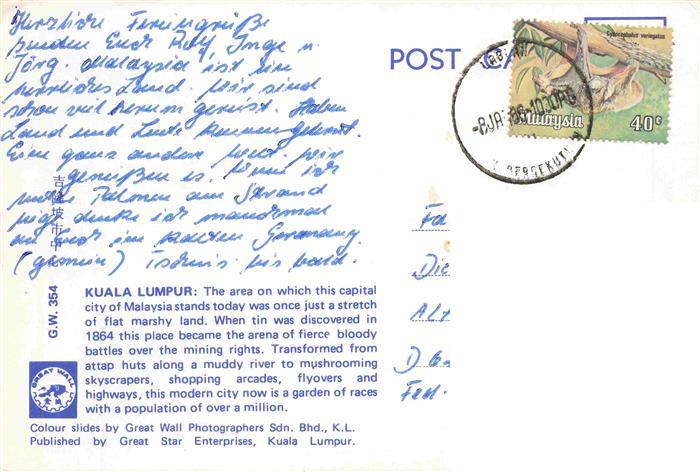 Herzliche Feriengrüße
senden Euch Rolf, Inge u.
Jörg. Malaysia ist ein
herrliches Land. Wir sind
schon viel herum gereist. Haben
Land und Leute kennengelernt.
Eine ganz andere Welt. Wir
genießen es. Wenn ich
unter Palmen am Strand
liege denke ich manchmal
an Euch im kalten Germany
(gemein) Tschüs bis bald.
POST CA
Cynocephalus variegatus
Malaysia 40c
-8JA 86-1030PG
Fa
Die
D
Fed.
吉隆坡市中心
G.W. 354
KUALA LUMPUR: The area on which this capital
city of Malaysia stands today was once just a stretch
of flat marshy land. When tin was discovered in
1864 this place became the arena of fierce bloody
battles over the mining rights. Transformed from
attap huts along a muddy river to mushrooming
skyscrapers, shopping arcades, flyovers and
highways, this modern city now is a garden of races
with a population of over a million.
GREAT WALL
Colour slides by Great Wall Photographers Sdn. Bhd., K.L.
Published by Great Star Enterprises, Kuala Lumpur.